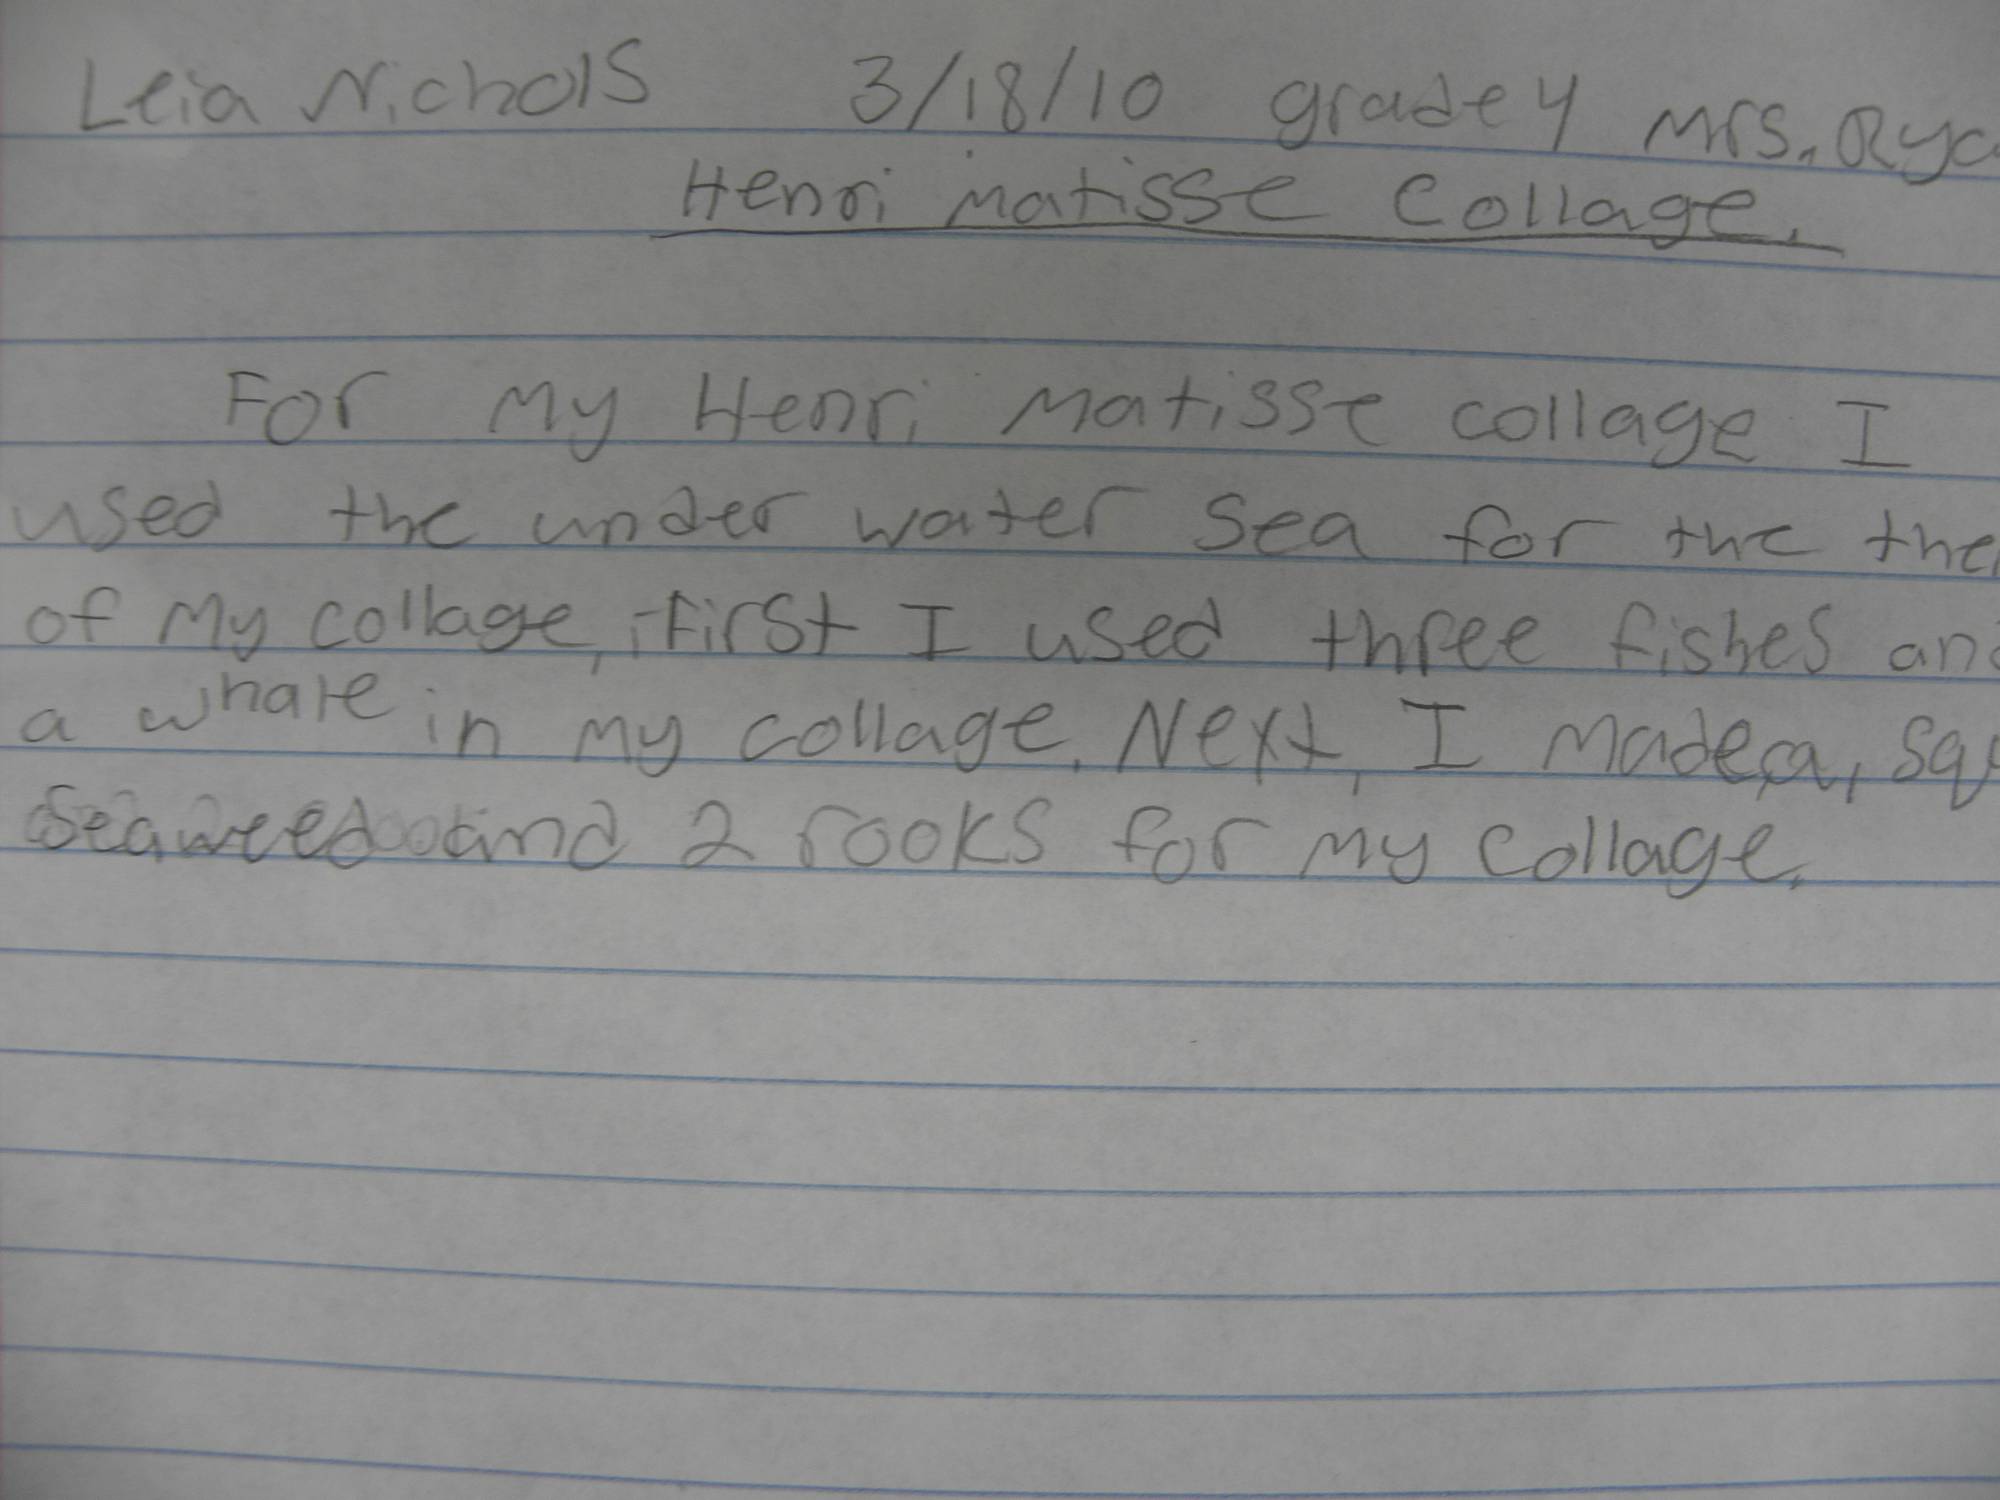 Leia Nichols 3/18/10 grade 4 Mrs. Rya
Henri Matisse Collage.
For my Henri Matisse collage I
used the under water sea for the the
of my collage, First I used three fishes and
a whale in my collage. Next, I made a, squ
Seaweed and 2 rooks for my collage.